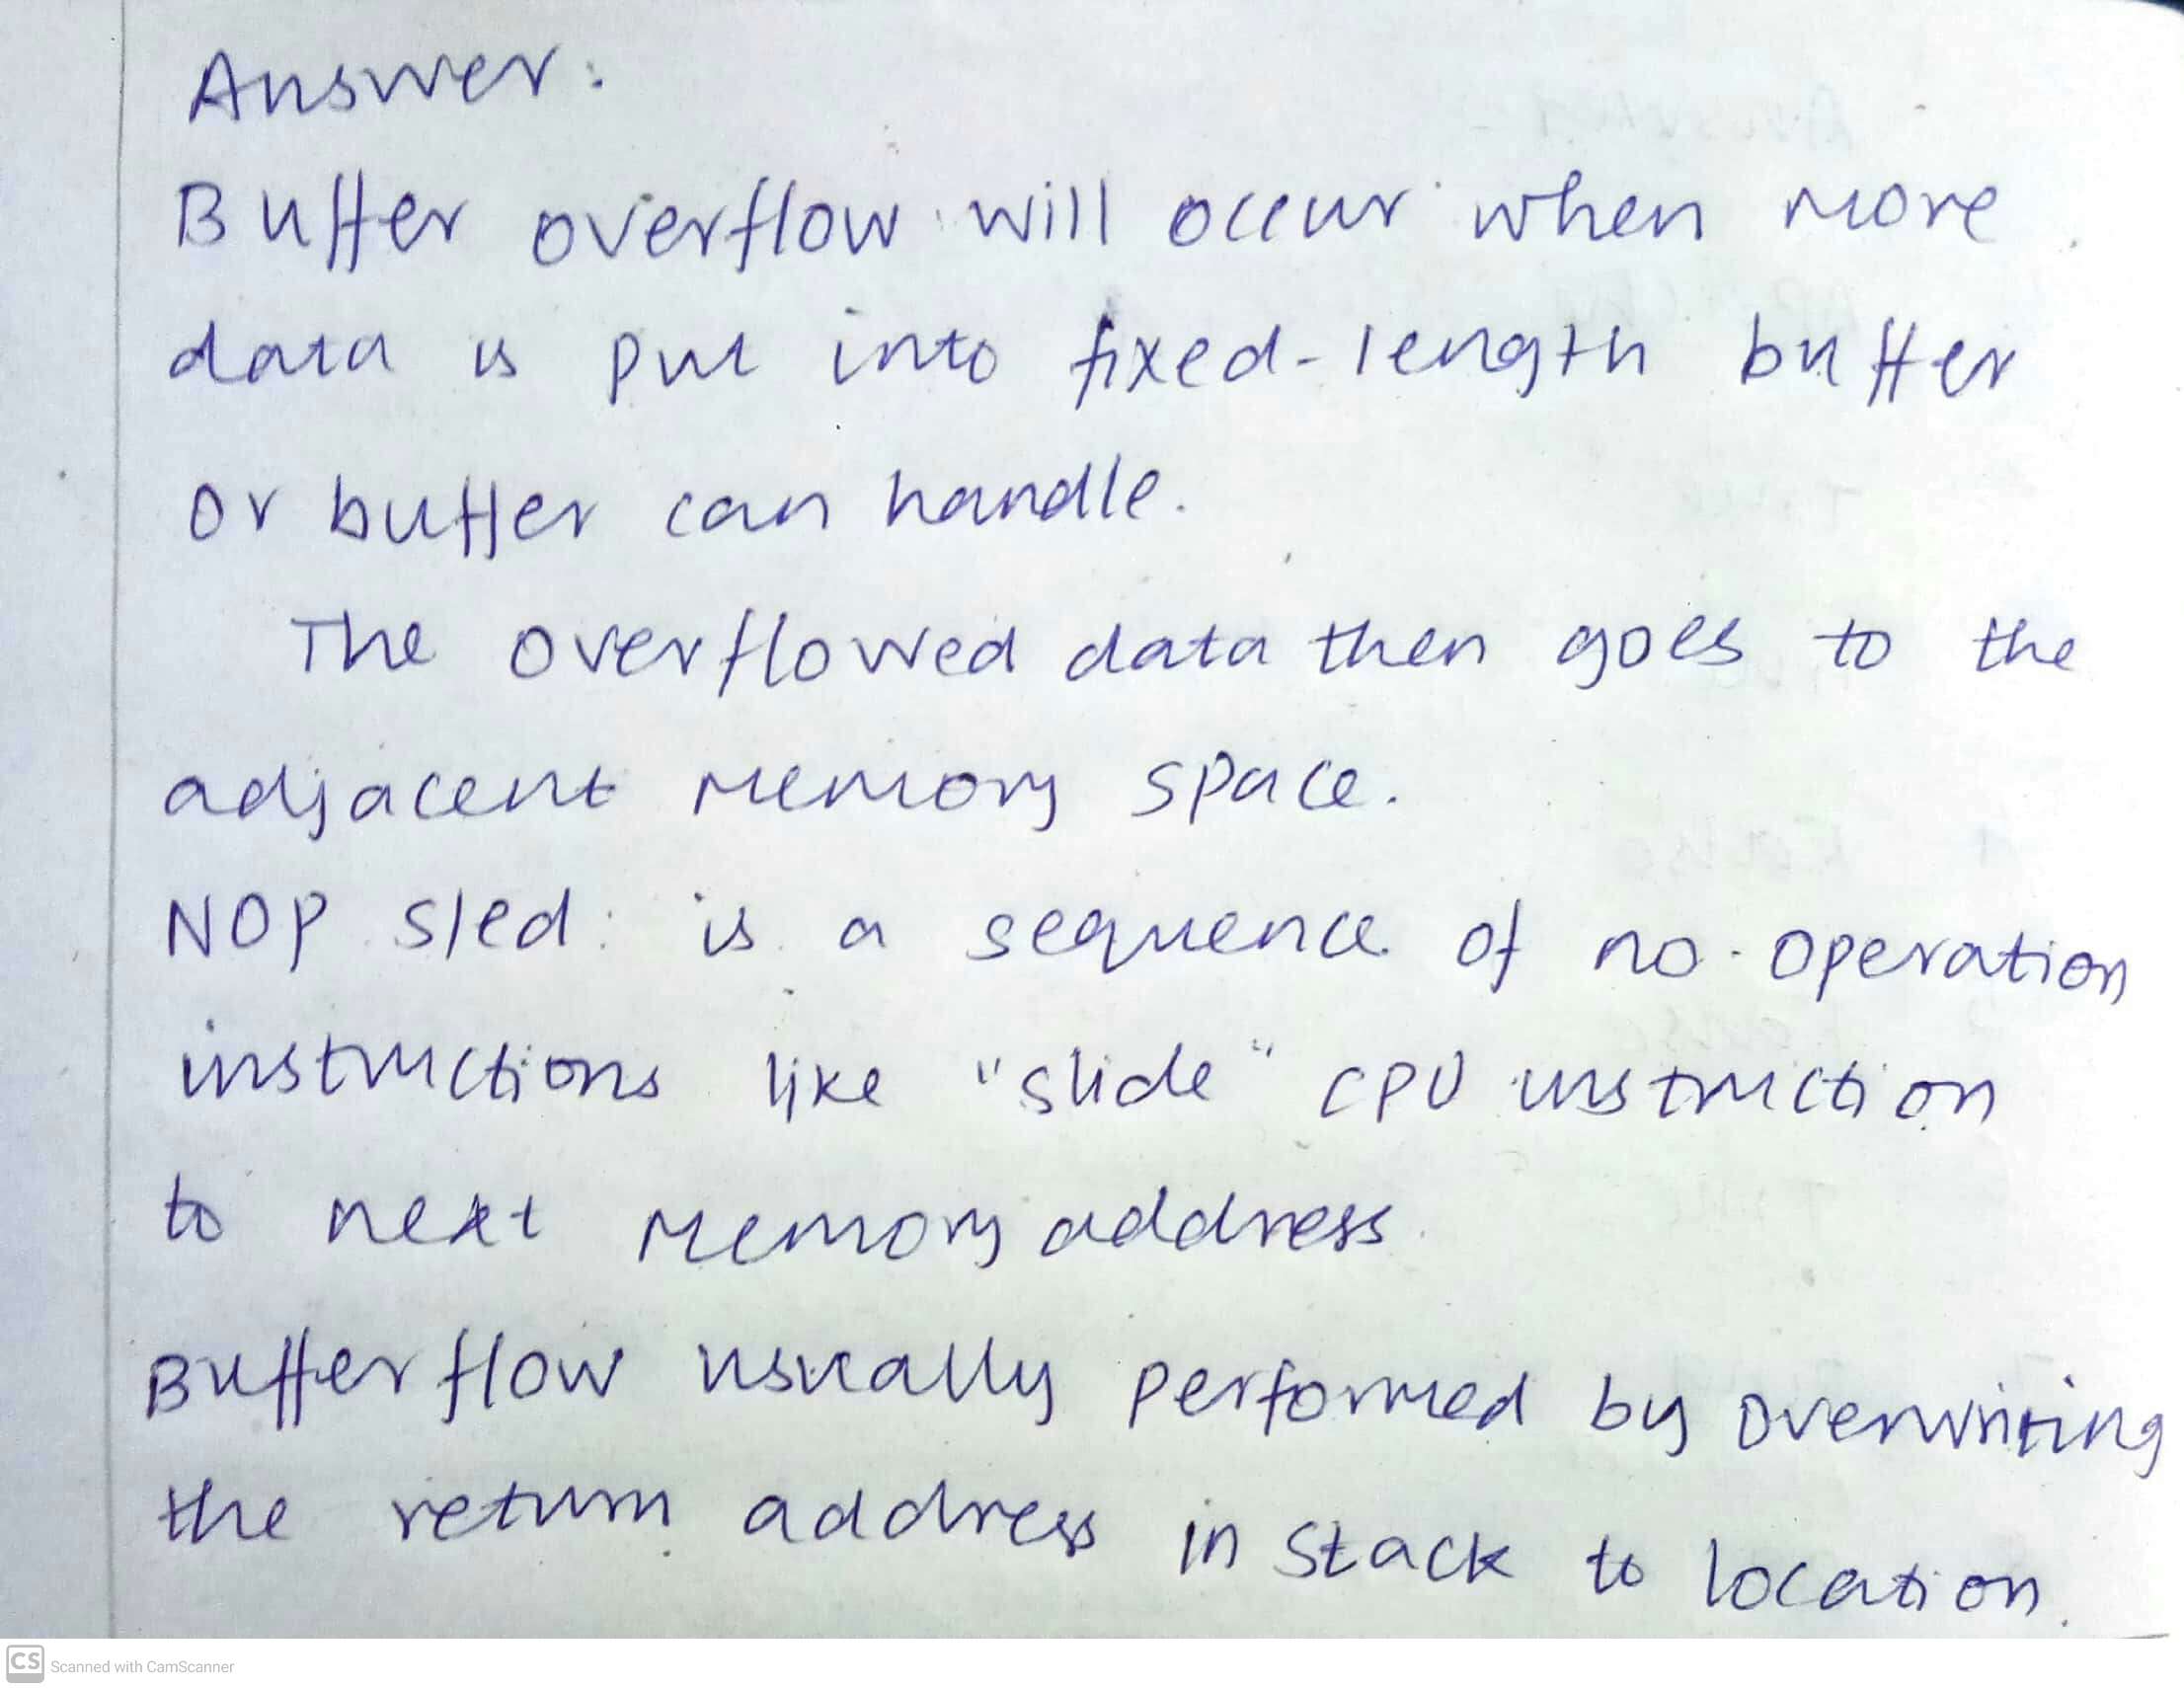 Answer:
Buffer overflow will occur when more
data is put into fixed-length buffer
or buffer can handle.
The overflowed data then goes to the
adjacent memory space.
NOP sled: is a sequence of no-operation
instructions like "slide" CPU instruction
to next memory address.
Buffer flow usually performed by overwriting
the return address in stack to location.
CS Scanned with CamScanner